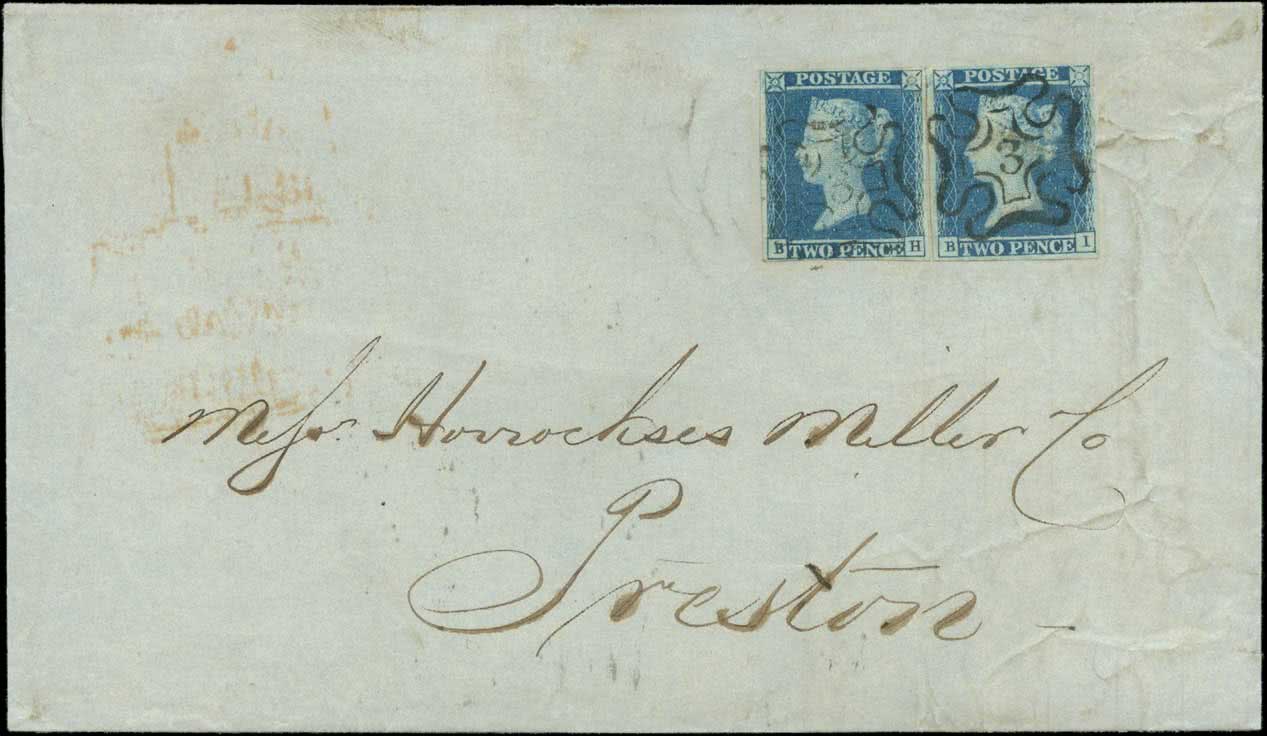 POSTAGE POSTAGE
3
B TWO PENCE H B TWO PENCE I
Messrs Horrockses Miller Co
Preston